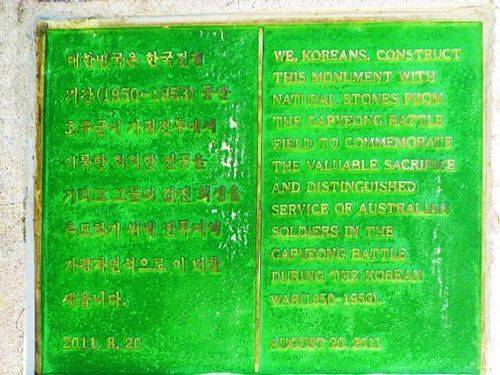 대한민국은 한국전쟁
기간(1950-1953) 동안
호주군이 가평전투에서
이룩한 혁혁한 전공을
기리고 그들의 값진 희생을
추모하기 위해 전투지역
가평자연석으로 이 비를
세웁니다.
2011. 8. 20
WE, KOREANS, CONSTRUCT
THIS MONUMENT WITH
NATURAL STONES FROM
THE GAPYEONG BATTLE
FIELD TO COMMEMORATE
THE VALUABLE SACRIFICE
AND DISTINGUISHED
SERVICE OF AUSTRALIAN
SOLDIERS IN THE
GAPYEONG BATTLE
DURING THE KOREAN
WAR(1950-1953).
AUGUST 20, 2011